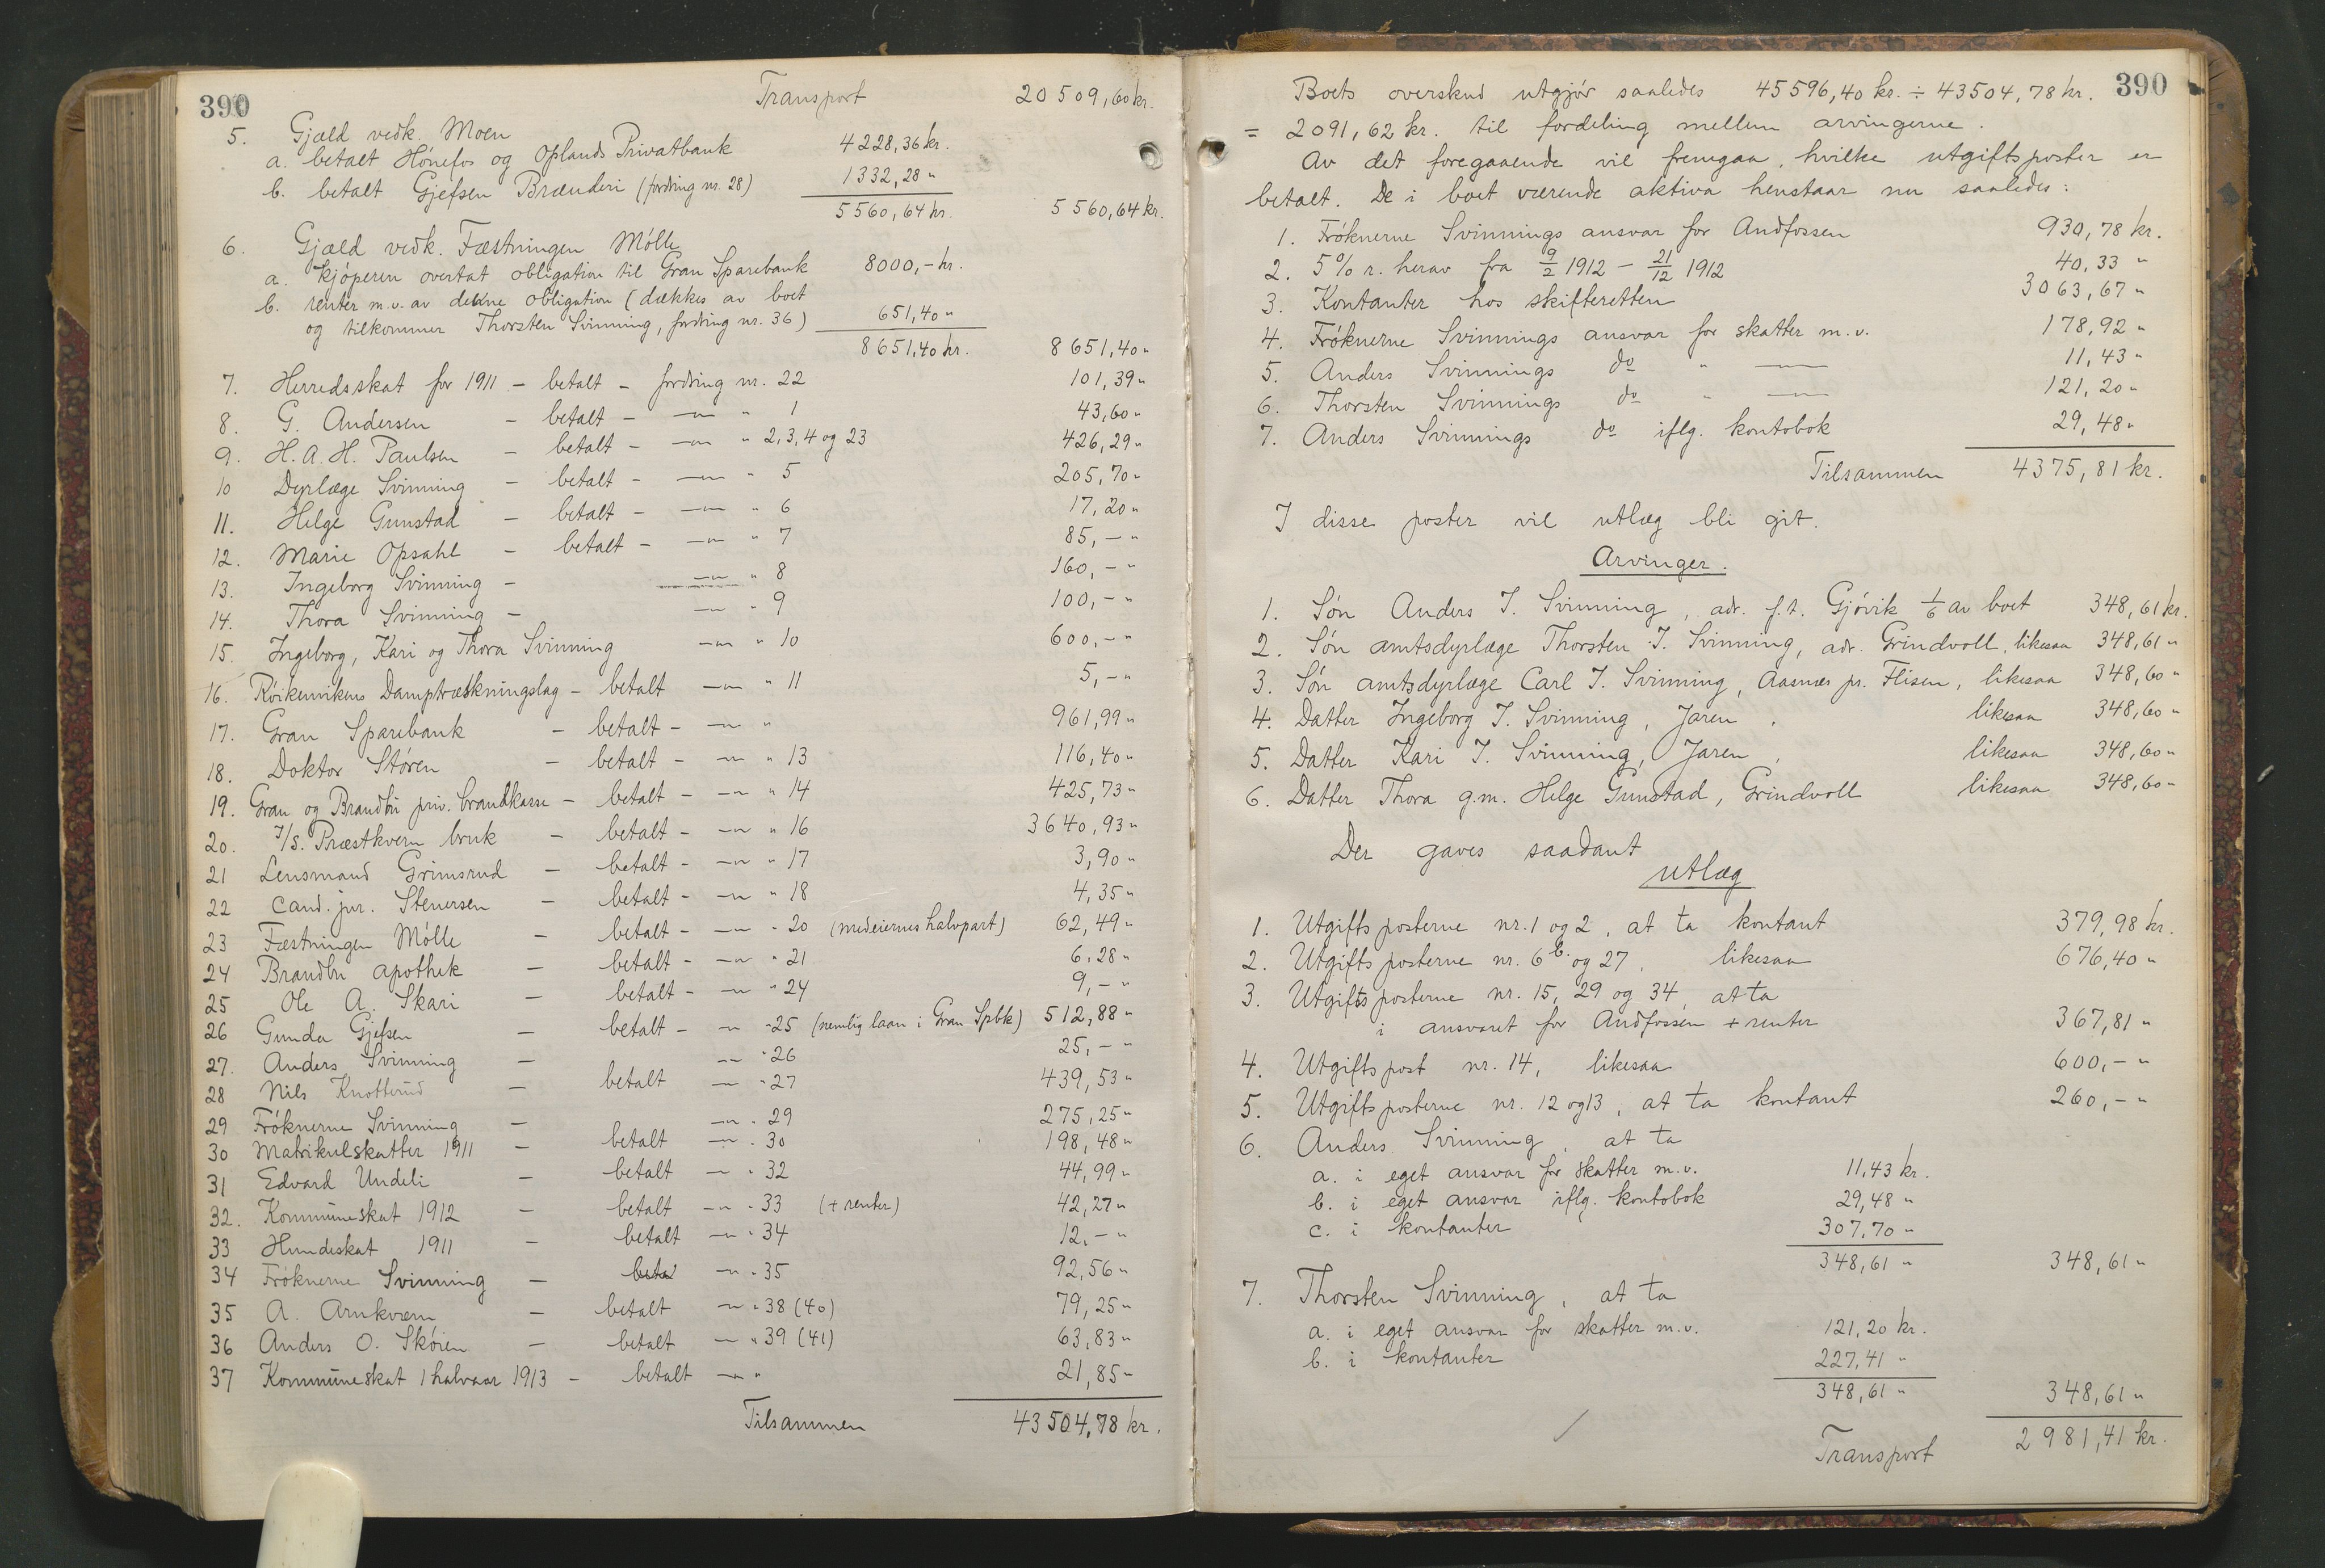 390
Transport 20 509,60 kr.
5. Gjæld vedk. Moen
a. betalt Hönefos og Oplands Privatbank 4228,36 kr.
b. betalt Gjefsen Brænderi (fordring nr. 28) 1332,28 "
5560,64 kr. 5 560,64 kr.
6. Gjæld vedk. Fæstningen Mölle
a. kjöperen overtat obligation til Gran Sparebank 8000,- kr.
b. renter m.v. av denne obligation (dækkes av boet
og tilkommer Thorsten Svinning, fordring nr. 36) 651,40 "
8651,40 kr. 8 651,40 "
7. Herredsskat for 1911 - betalt - fordring nr. 22 101,39 "
8. G. Andersen - betalt - —"— " 1 43,60 "
9. H. A. H. Paulsen - betalt - —"— " 2, 3, 4 og 23 426,29 "
10 Dyrlæge Svinning - betalt - —"— 5 205,70 "
11. Helge Gunstad - betalt - —"— " 6 17,20 "
12. Marie Opsahl - betalt - —"— " 7 85,- "
13. Ingeborg Svinning - —"— " 8 160,- "
14. Thora Svinning - —"— " 9 100,- "
15. Ingeborg, Kari og Thora Svinning —"— " 10 600,- "
16. Röikenvikens Damptræskningslag - betalt —"— " 11 5,- "
17. Gran Sparebank - betalt - —"— " 961,99 "
18. Doktor Stören - betalt - —"— " 13 116,40 "
19. Gran og Brandbu priv. brandkasse - betalt - —"— " 14 425,73 "
20. I/S. Præstkvern bruk - betalt - —"— " 16 3640,93 "
21 Lensmand Grimsrud - betalt - —"— " 17 3,90 "
22 Cand. jur. Stenersen - betalt - —"— " 18 4,35 "
23 Fæstningen Mölle - betalt - —"— " 20 (medeiernes halvpart) 62,49 "
24 Brandbu apothek - betalt - —"— " 21 6,28 "
25 Ole A. Skari - betalt - —"— " 24 9,- "
26 Gunda Gjefsen - betalt - —"— " 25 (nemlig laan i Gran Spbk) 512,88 "
27. Anders Svinning - —"— " 26 25,- "
28 Nils Knotterud - betalt —"— " 27 439,53 "
29 Fröknerne Svinning - —"— " 29 275,25 "
30 Matrikulskatter 1911 - betalt —"— " 30 198,48 "
31 Edvard Undeli - betalt —"— " 32 44,99 "
32. Kommuneskat 1912 - betalt —"— " 33 (+ renter) 42,27 "
33 Hundeskat 1911 - betalt —"— " 34 12,- "
34 Fröknerne Svinning - betal —"— " 35 92,56 "
35 A. Arnkværn - betalt —"— " 38 (40) 79,25 "
36 Anders O. Sköien - betalt —"— " 39 (41) 63,83 "
37 Kommuneskat 1 halvaar 1913 - betalt —"— " 21,85 "
Tilsammen 43 504,78 kr.
390
Boets overskud utgjör saaledes 45596,40 kr. ÷ 43504,78 kr.
= 2091,62 kr. til fordeling mellem arvingerne.
Av det foregaaende vil fremgaa, hvilke utgiftsposter er
betalt. De i boet værende aktiva henstaar nu saaledes:
1. Fröknerne Svinnings ansvar for Andfossen 930,78 kr.
2. 5% r. herav fra 9/2 1912 - 21/12 1912 40,33 "
3. Kontanter hos skifteretten 3063,67 "
4. Fröknerne Svinnings ansvar for skatter m.v. 178,92 "
5. Anders Svinnings do " —"— 11,43 "
6. Thorsten Svinnings do " —"— 121,20 "
7. Anders Svinnings do iflg. kontobok 29,48 "
Tilsammen 4375,81 kr.
I disse poster vil utlæg bli git.
Arvinger.
1. Sön Anders I. Svinning, adr. f.t. Gjövik 1/6 av boet 348,61 kr.
2. Sön amtsdyrlæge Thorsten I. Svinning, adr. Grindvoll, likesaa 348,61 "
3. Sön amtsdyrlæge Carl I. Svinning, Aasnes pr. Flisen, likesaa 348,60 "
4. Datter Ingeborg I. Svinning, Jaren, likesaa 348,60 "
5. Datter Kari I. Svinning, Jaren, likesaa 348,60 "
6. Datter Thora g.m. Helge Gunstad, Grindvoll likesaa 348,60 "
Der gaves saadant
utlæg
1. Utgiftsposterne nr. 1 og 2, at ta kontant 379,98 kr.
2. Utgiftsposterne nr. 6 b. og 27, likesaa 676,40 "
3. Utgiftsposterne nr. 15, 29 og 34, at ta
i ansvaret for Andfossen + renter 367,81 "
4. Utgiftspost nr. 14, likesaa 600,- "
5. Utgiftsposterne nr. 12 og 13, at ta kontant 260,- "
6. Anders Svinning, at ta
a. i eget ansvar for skatter m.v. 11,43 kr.
b. i eget ansvar iflg. kontobok 29,48 "
c. i kontanter 307,70 "
348,61 " 348,61 "
7. Thorsten Svinning, at ta
a. i eget ansvar for skatter m.v. 121,20 kr.
b. i kontanter 227,41 "
348,61 " 348,61 "
Transport 2 981,41 kr.